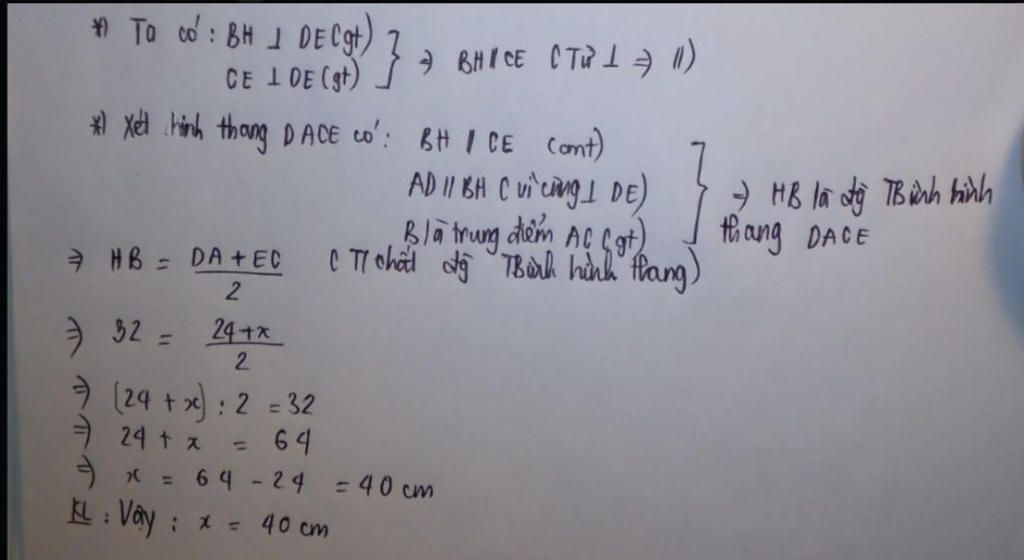 *) Ta có: BH ⊥ DE (gt)
CE ⊥ DE (gt) } ⇒ BH // CE (Từ ⊥ ⇒ //)
*) Xét hình thang DACE có: BH // CE (cmt)
AD // BH (vì cùng ⊥ DE)
B là trung điểm AC (gt) } ⇒ HB là đg TBình hình
thang DACE
⇒ HB = (DA + EC)/2 (T/chất đg TBình hình thang)
⇒ 32 = (24 + x)/2
⇒ (24 + x) : 2 = 32
⇒ 24 + x = 64
⇒ x = 64 - 24 = 40 cm
KL : Vậy : x = 40 cm